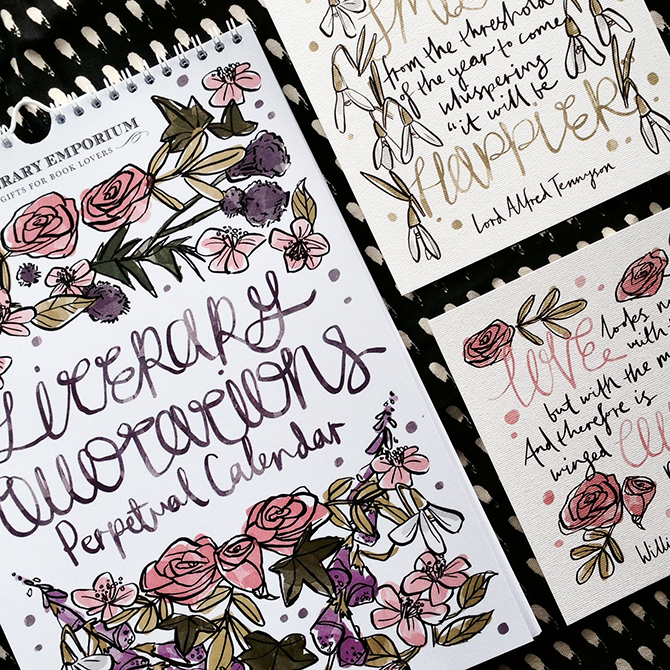 RARY EMPORIUM
GIFTS FOR BOOK LOVERS
Literary
Quotations
Perpetual Calendar
from the threshold
of the year to come
whispering
"it will be
HAPPIER
Lord Alfred Tennyson
LOVE looks n
with
but with the m
And therefore is
winged
Willi